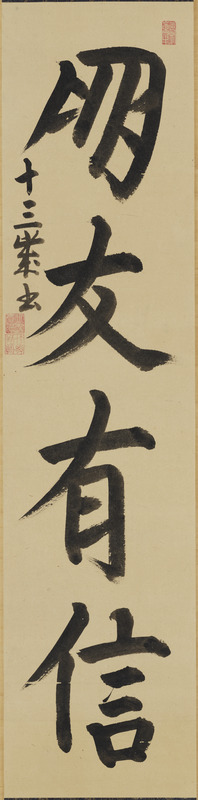 朋友有信
十三歳書